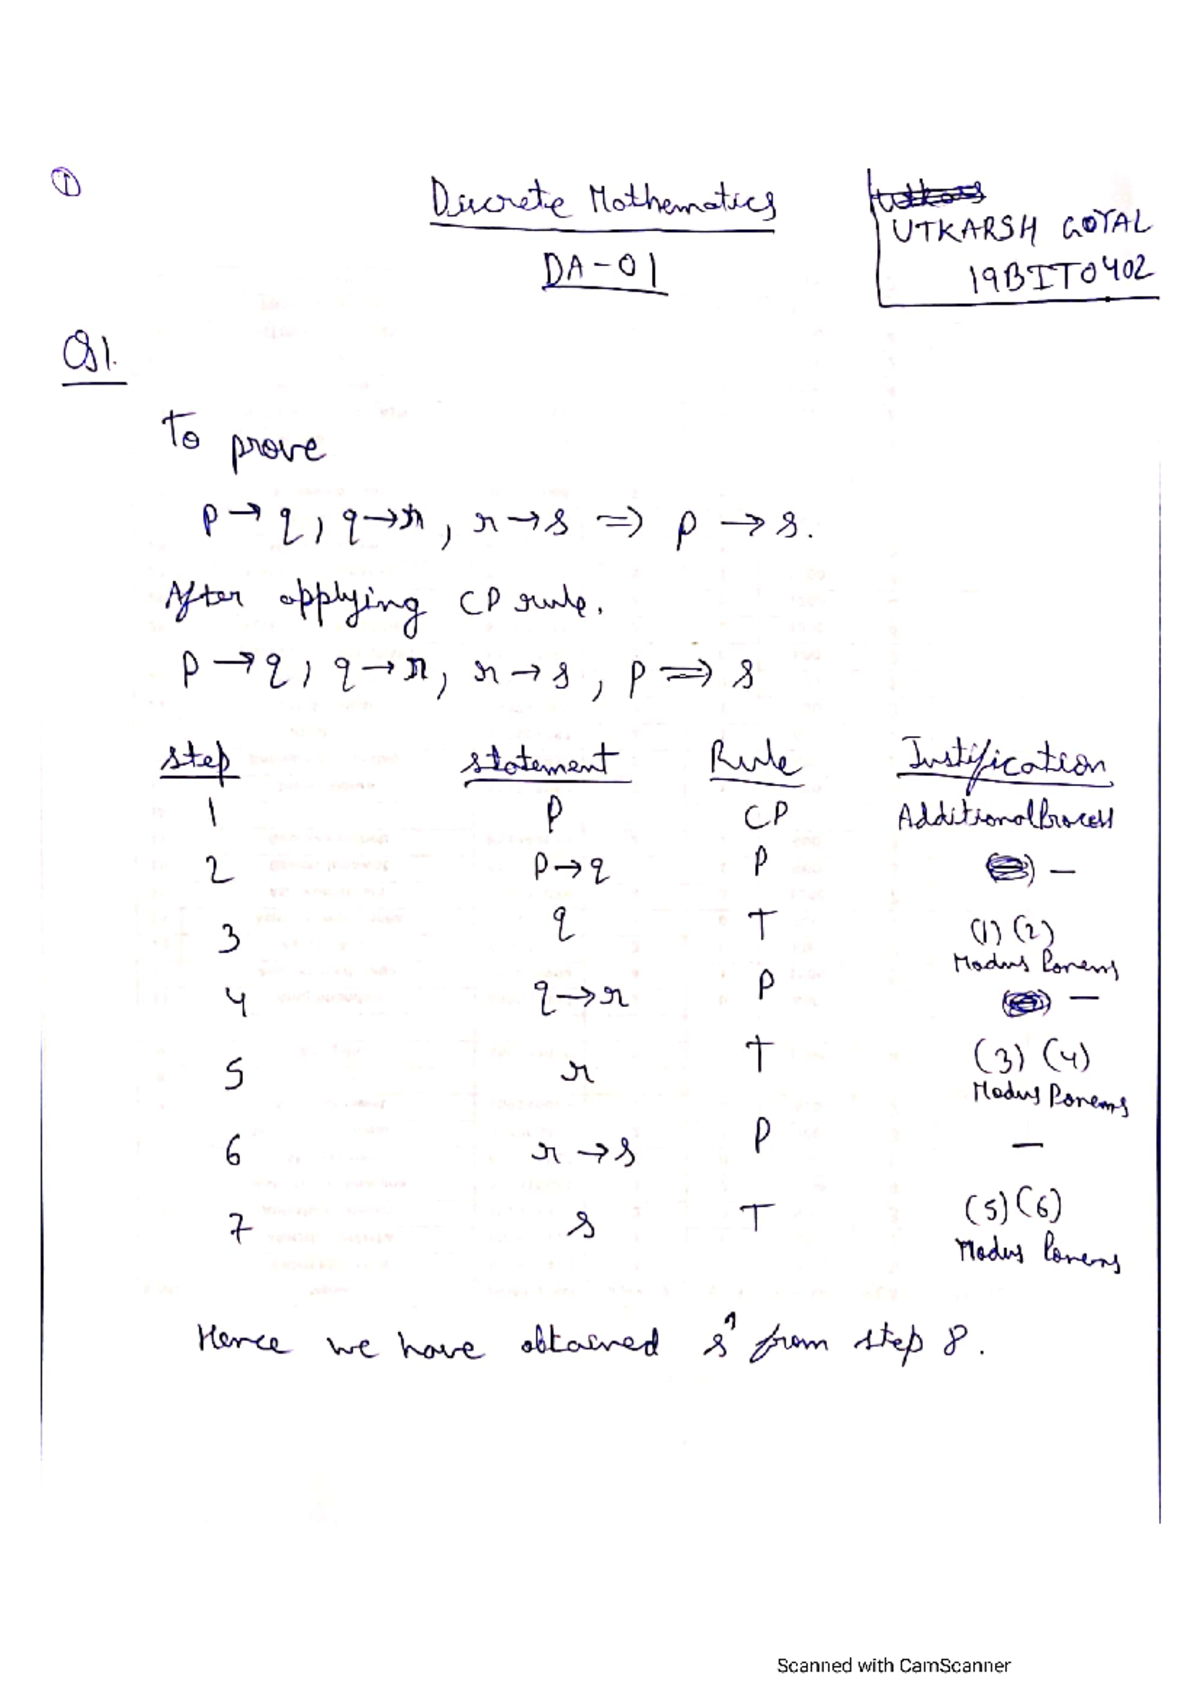 ①
Discrete Mathematics
DA-01
UTKARSH GOYAL
19BIT0402
Q1.
To prove
p → q, q → r, r → s ⇒ p → s.
After applying CP rule.
p → q, q → r, r → s, p ⇒ s
Step Statement Rule Justification
1 P CP Additional Process
2 P → q P —
3 q T (1) (2)
Modus Ponens
4 q → r P —
5 r T (3) (4)
Modus Ponens
6 r → s P —
7 s T (5) (6)
Modus Ponens
Hence we have obtained s from step 8.
Scanned with CamScanner